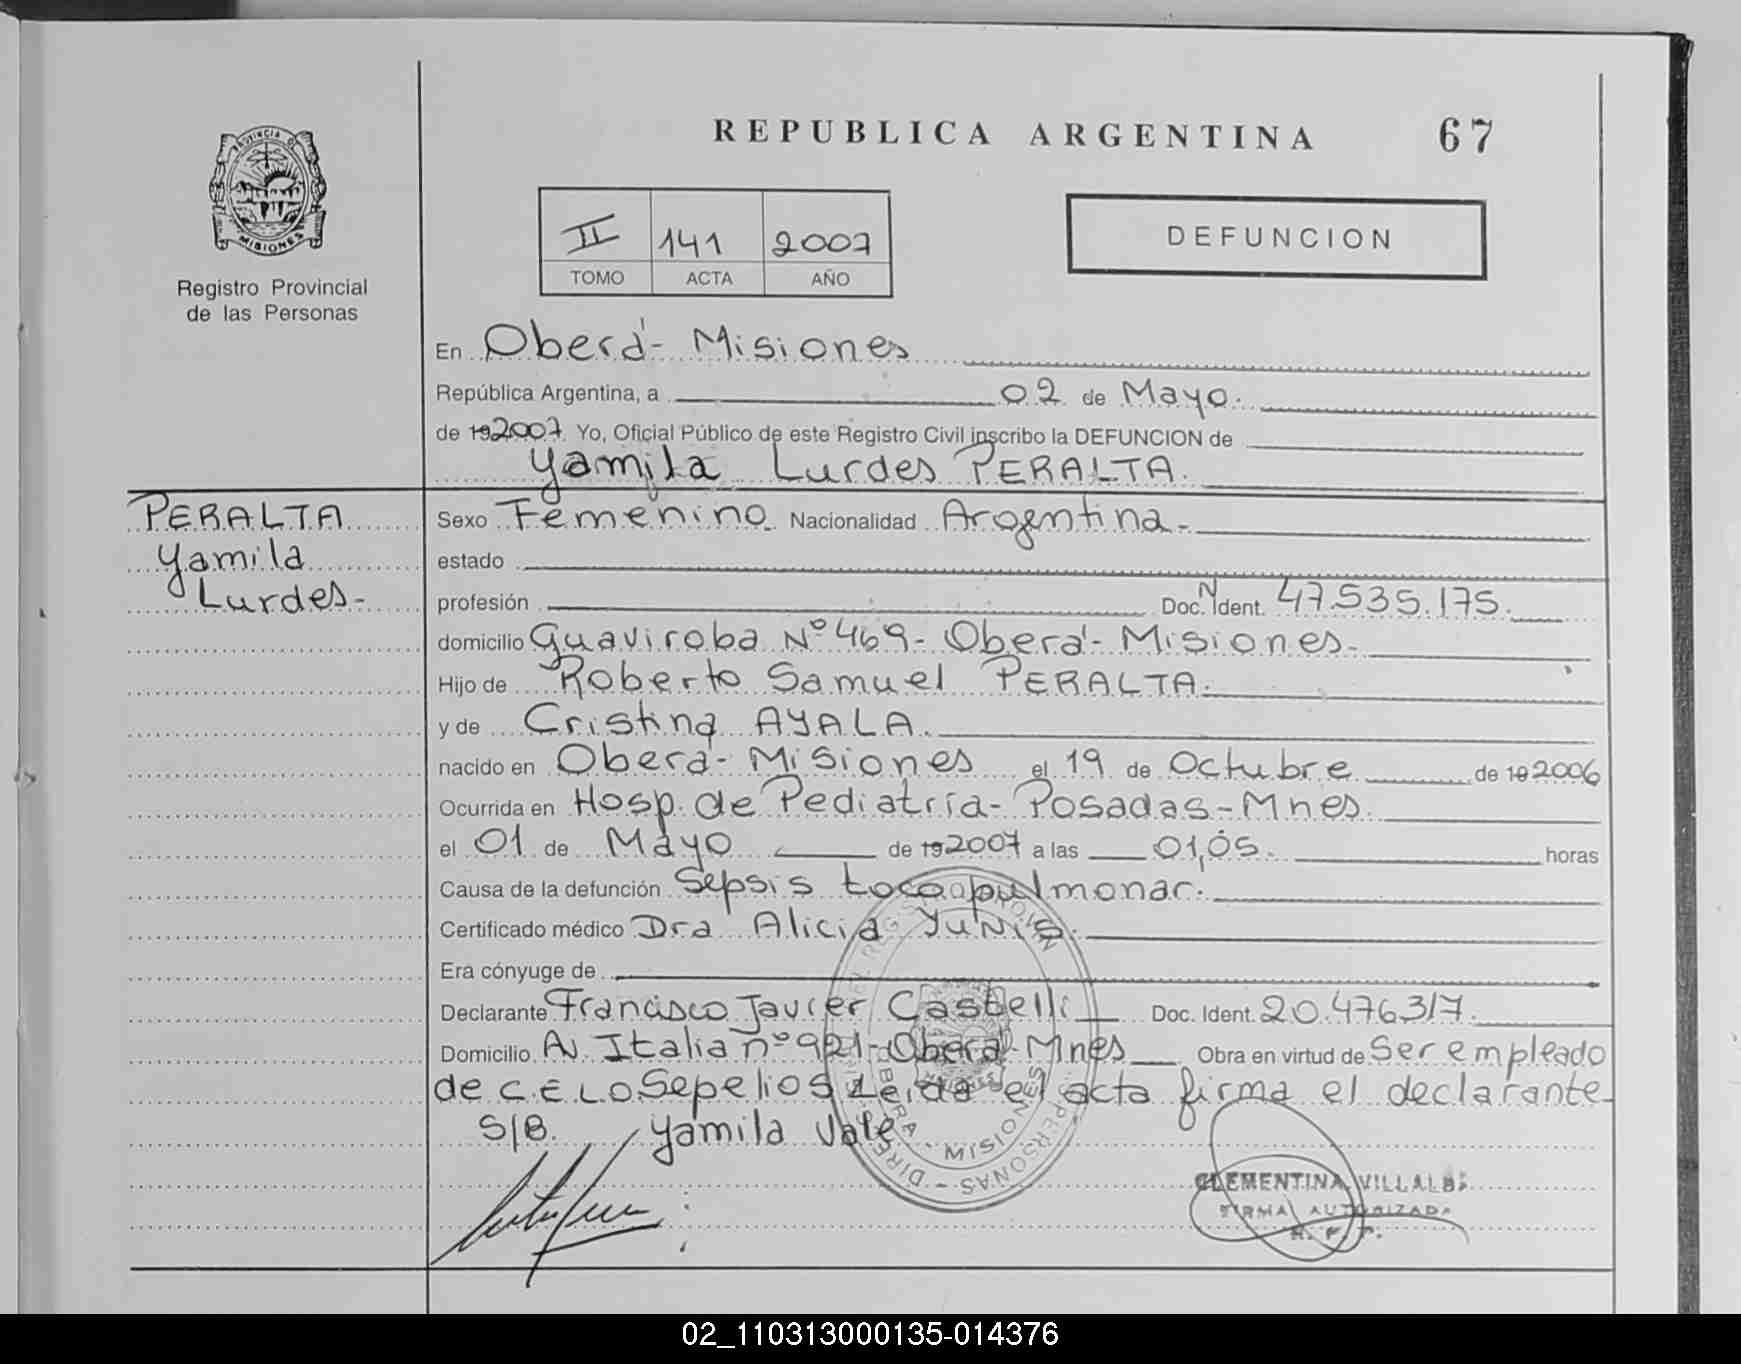 REPUBLICA ARGENTINA 67
PROVINCIA DE
MISIONES
Registro Provincial
de las Personas
II 141 2007
TOMO ACTA AÑO
DEFUNCION
En Oberá - Misiones
República Argentina, a 02 de Mayo.
de 192007. Yo, Oficial Público de este Registro Civil inscribo la DEFUNCION de
Yamila Lurdes PERALTA.
PERALTA
Yamila
Lurdes-
Sexo Femenino Nacionalidad Argentina-
estado
profesión Doc. N Ident. 47.535.175.
domicilio Guaviroba Nº 469- Oberá- Misiones-
Hijo de Roberto Samuel PERALTA.
y de Cristina AYALA.
nacido en Oberá- Misiones el 19 de Octubre de 192006
Ocurrida en Hosp. de Pediatría- Posadas-Mnes.
el 01 de Mayo de 192007 a las 01,05. horas
Causa de la defunción Sepsis toco pulmonar.
Certificado médico Dra Alicia YUNIS.
Era cónyuge de
Declarante Francisco Javier Castelli Doc. Ident. 20.476.317.
Domicilio Av. Italia nº 921-Oberá-Mnes Obra en virtud de Ser empleado
de C.E.L.O Sepelios Leida el acta firma el declarante-
S/B. Yamila Vale
OBERA - MISIONES
CLEMENTINA VILLALBA
FIRMA AUTORIZADA
02_110313000135-014376